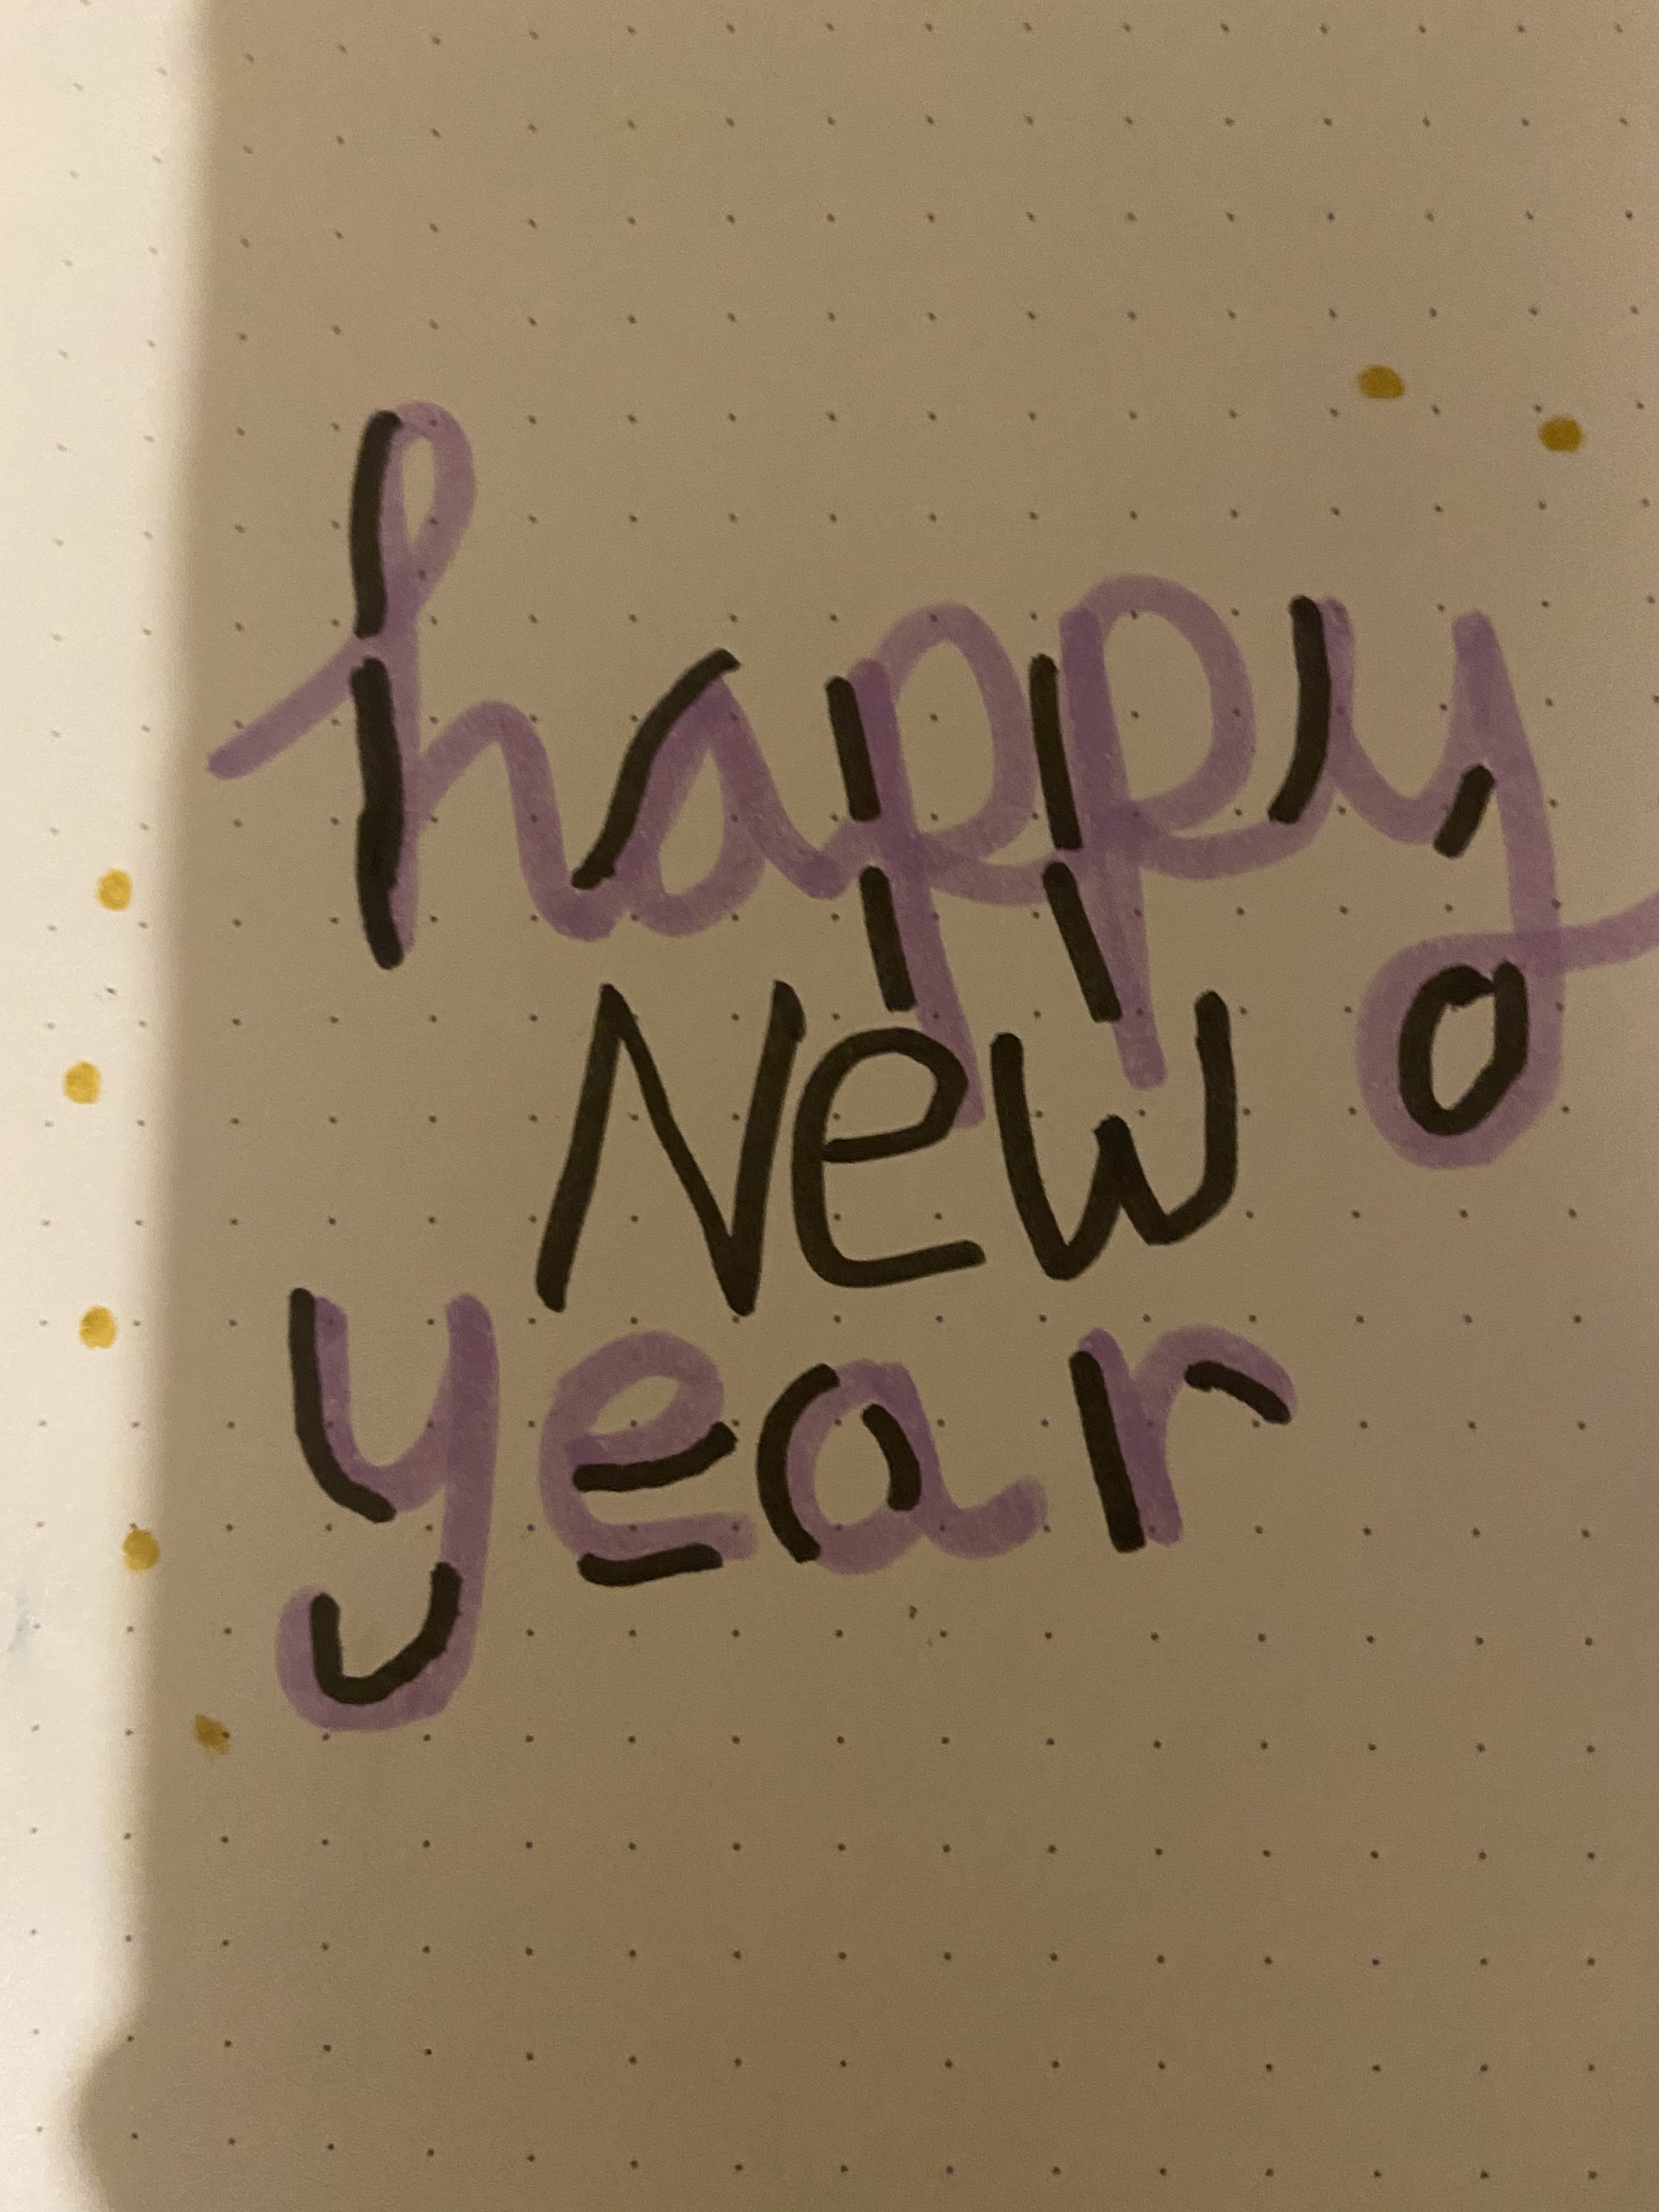 happy
New
year